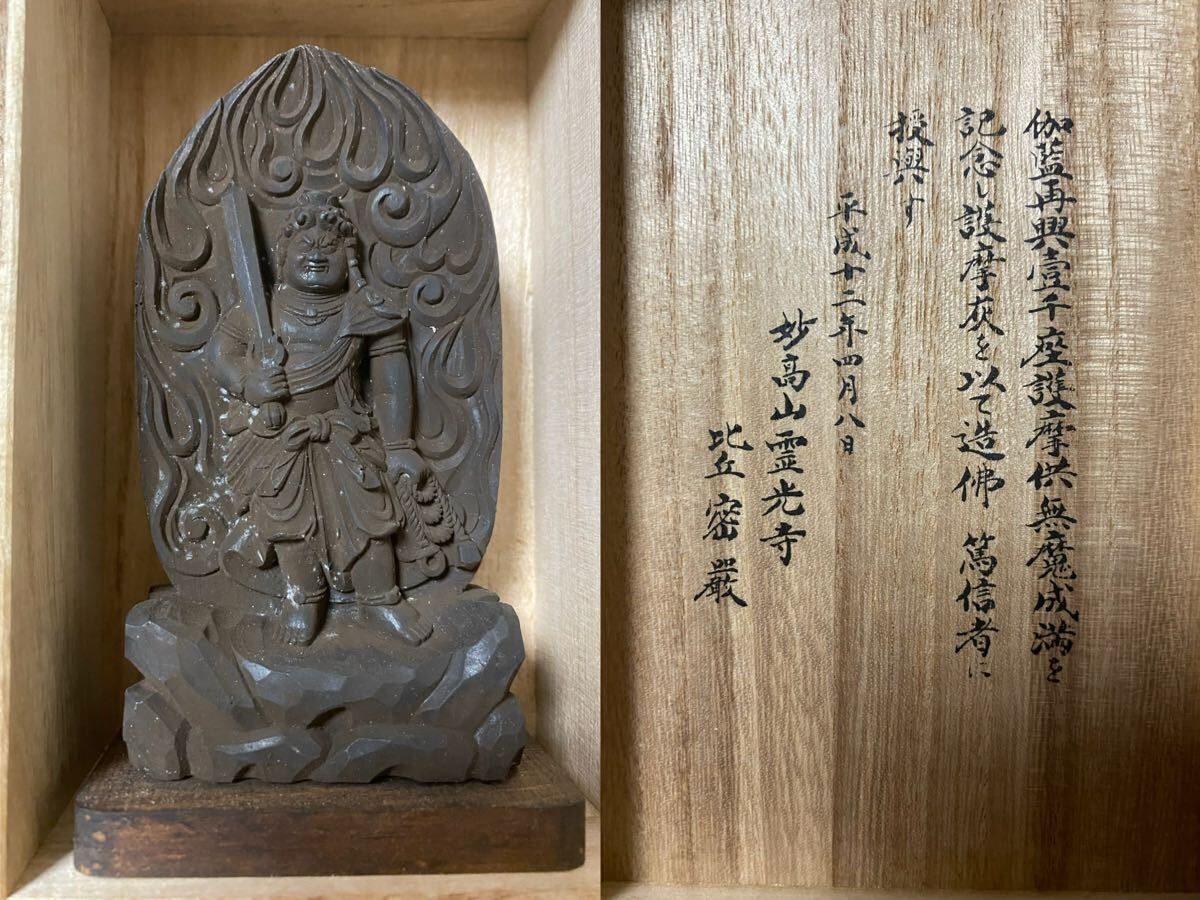 伽藍再興壹千座護摩供無魔成満を
記念し護摩灰を以て造佛 篤信者に
授與す
平成十二年四月八日
妙高山霊光寺
比丘 密嚴